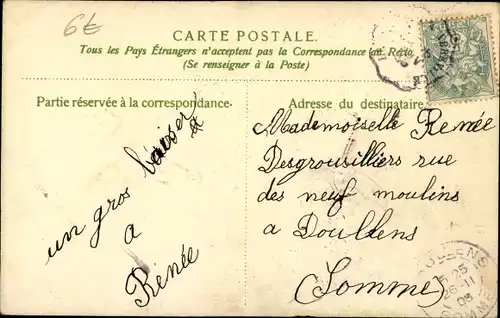 6€
CARTE POSTALE.
Tous les Pays Étrangers n'acceptent pas la Correspondance au Recto.
(Se renseigner à la Poste)
Partie réservée à la correspondance.
un gros baiser
a
Renée
Adresse du destinataire.
Mademoiselle Renée
Desgrousilliers rue
des neuf moulins
a Doullens
(Somme)
DOULLENS
5 25
26-11
08
SOMME